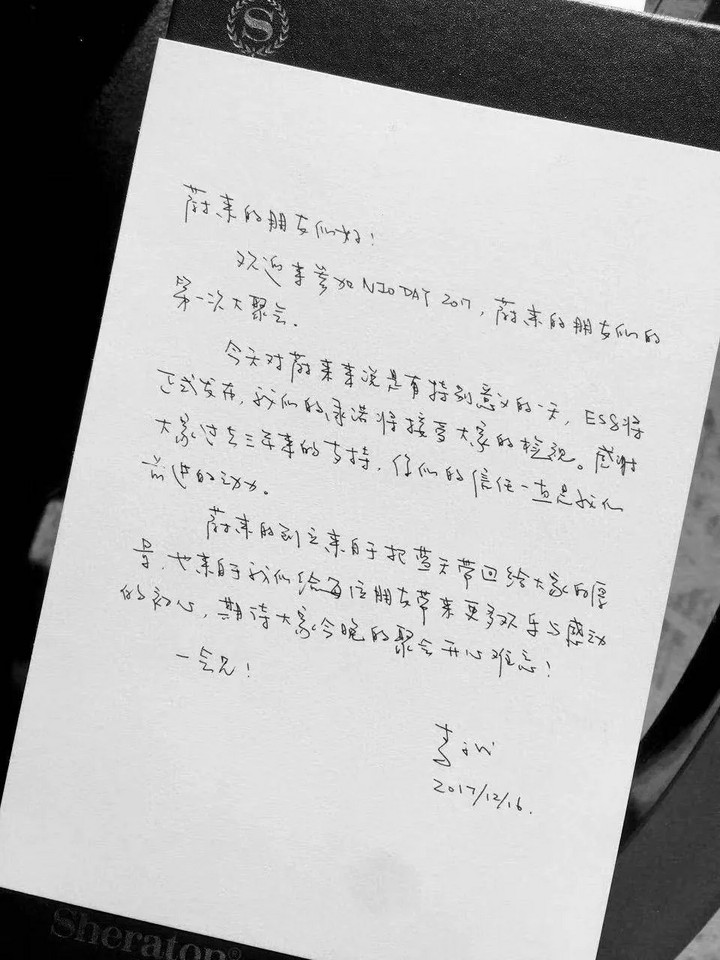 S
蔚来的朋友们好!
欢迎来参加NIO DAY 2017,蔚来的朋友们的
第一次大聚会。
今天对蔚来来说是有特别意义的一天,ES8将
正式发布,我们的承诺将接受大家的检视。感谢
大家过去三年来的支持,你们的信任一直是我们
前进的动力。
蔚来的创立来自于把蓝天带回给大家的愿
景,也来自于我们给每位朋友带来更多欢乐与感动
的初心,期待大家今晚的聚会开心难忘!
一会儿!
李斌
2017/12/16.
Sheraton®